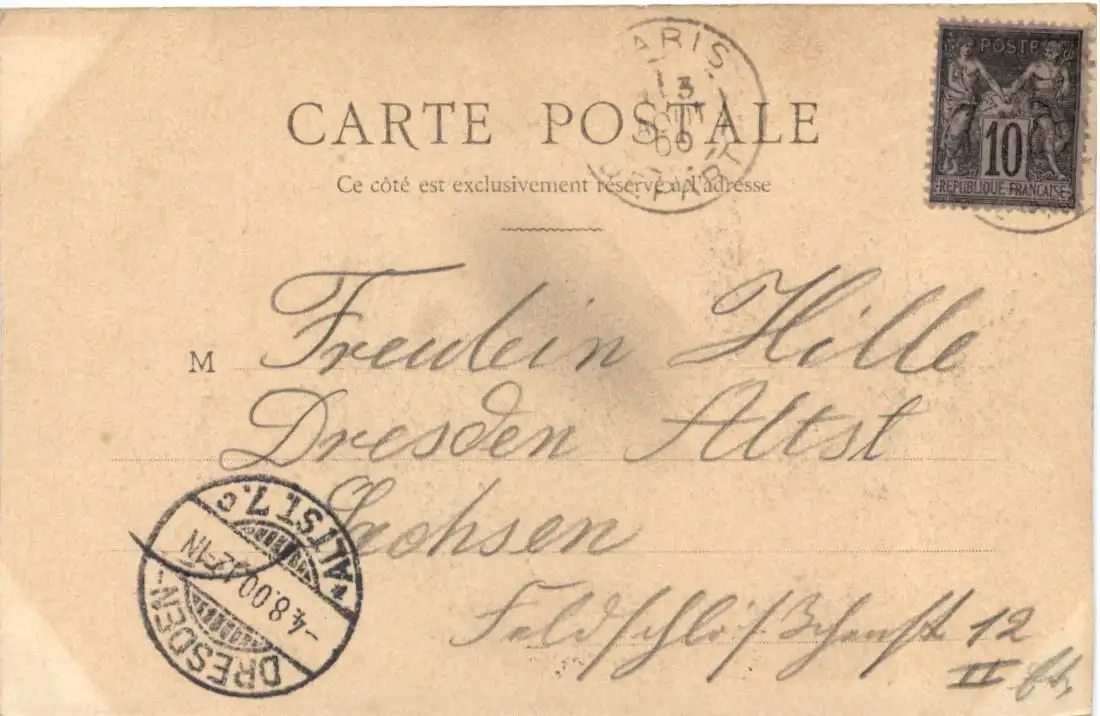 CARTE POSTALE
Ce côté est exclusivement réservé à l'adresse
PARIS
13
AOUT
00
DEPART
POSTE
10
REPUBLIQUE FRANÇAISE
M Freulein Hille
Dresden Altst
Sachsen
12
II
DRESDEN-
ALTST. 7.c
-4.8.00.12-1N